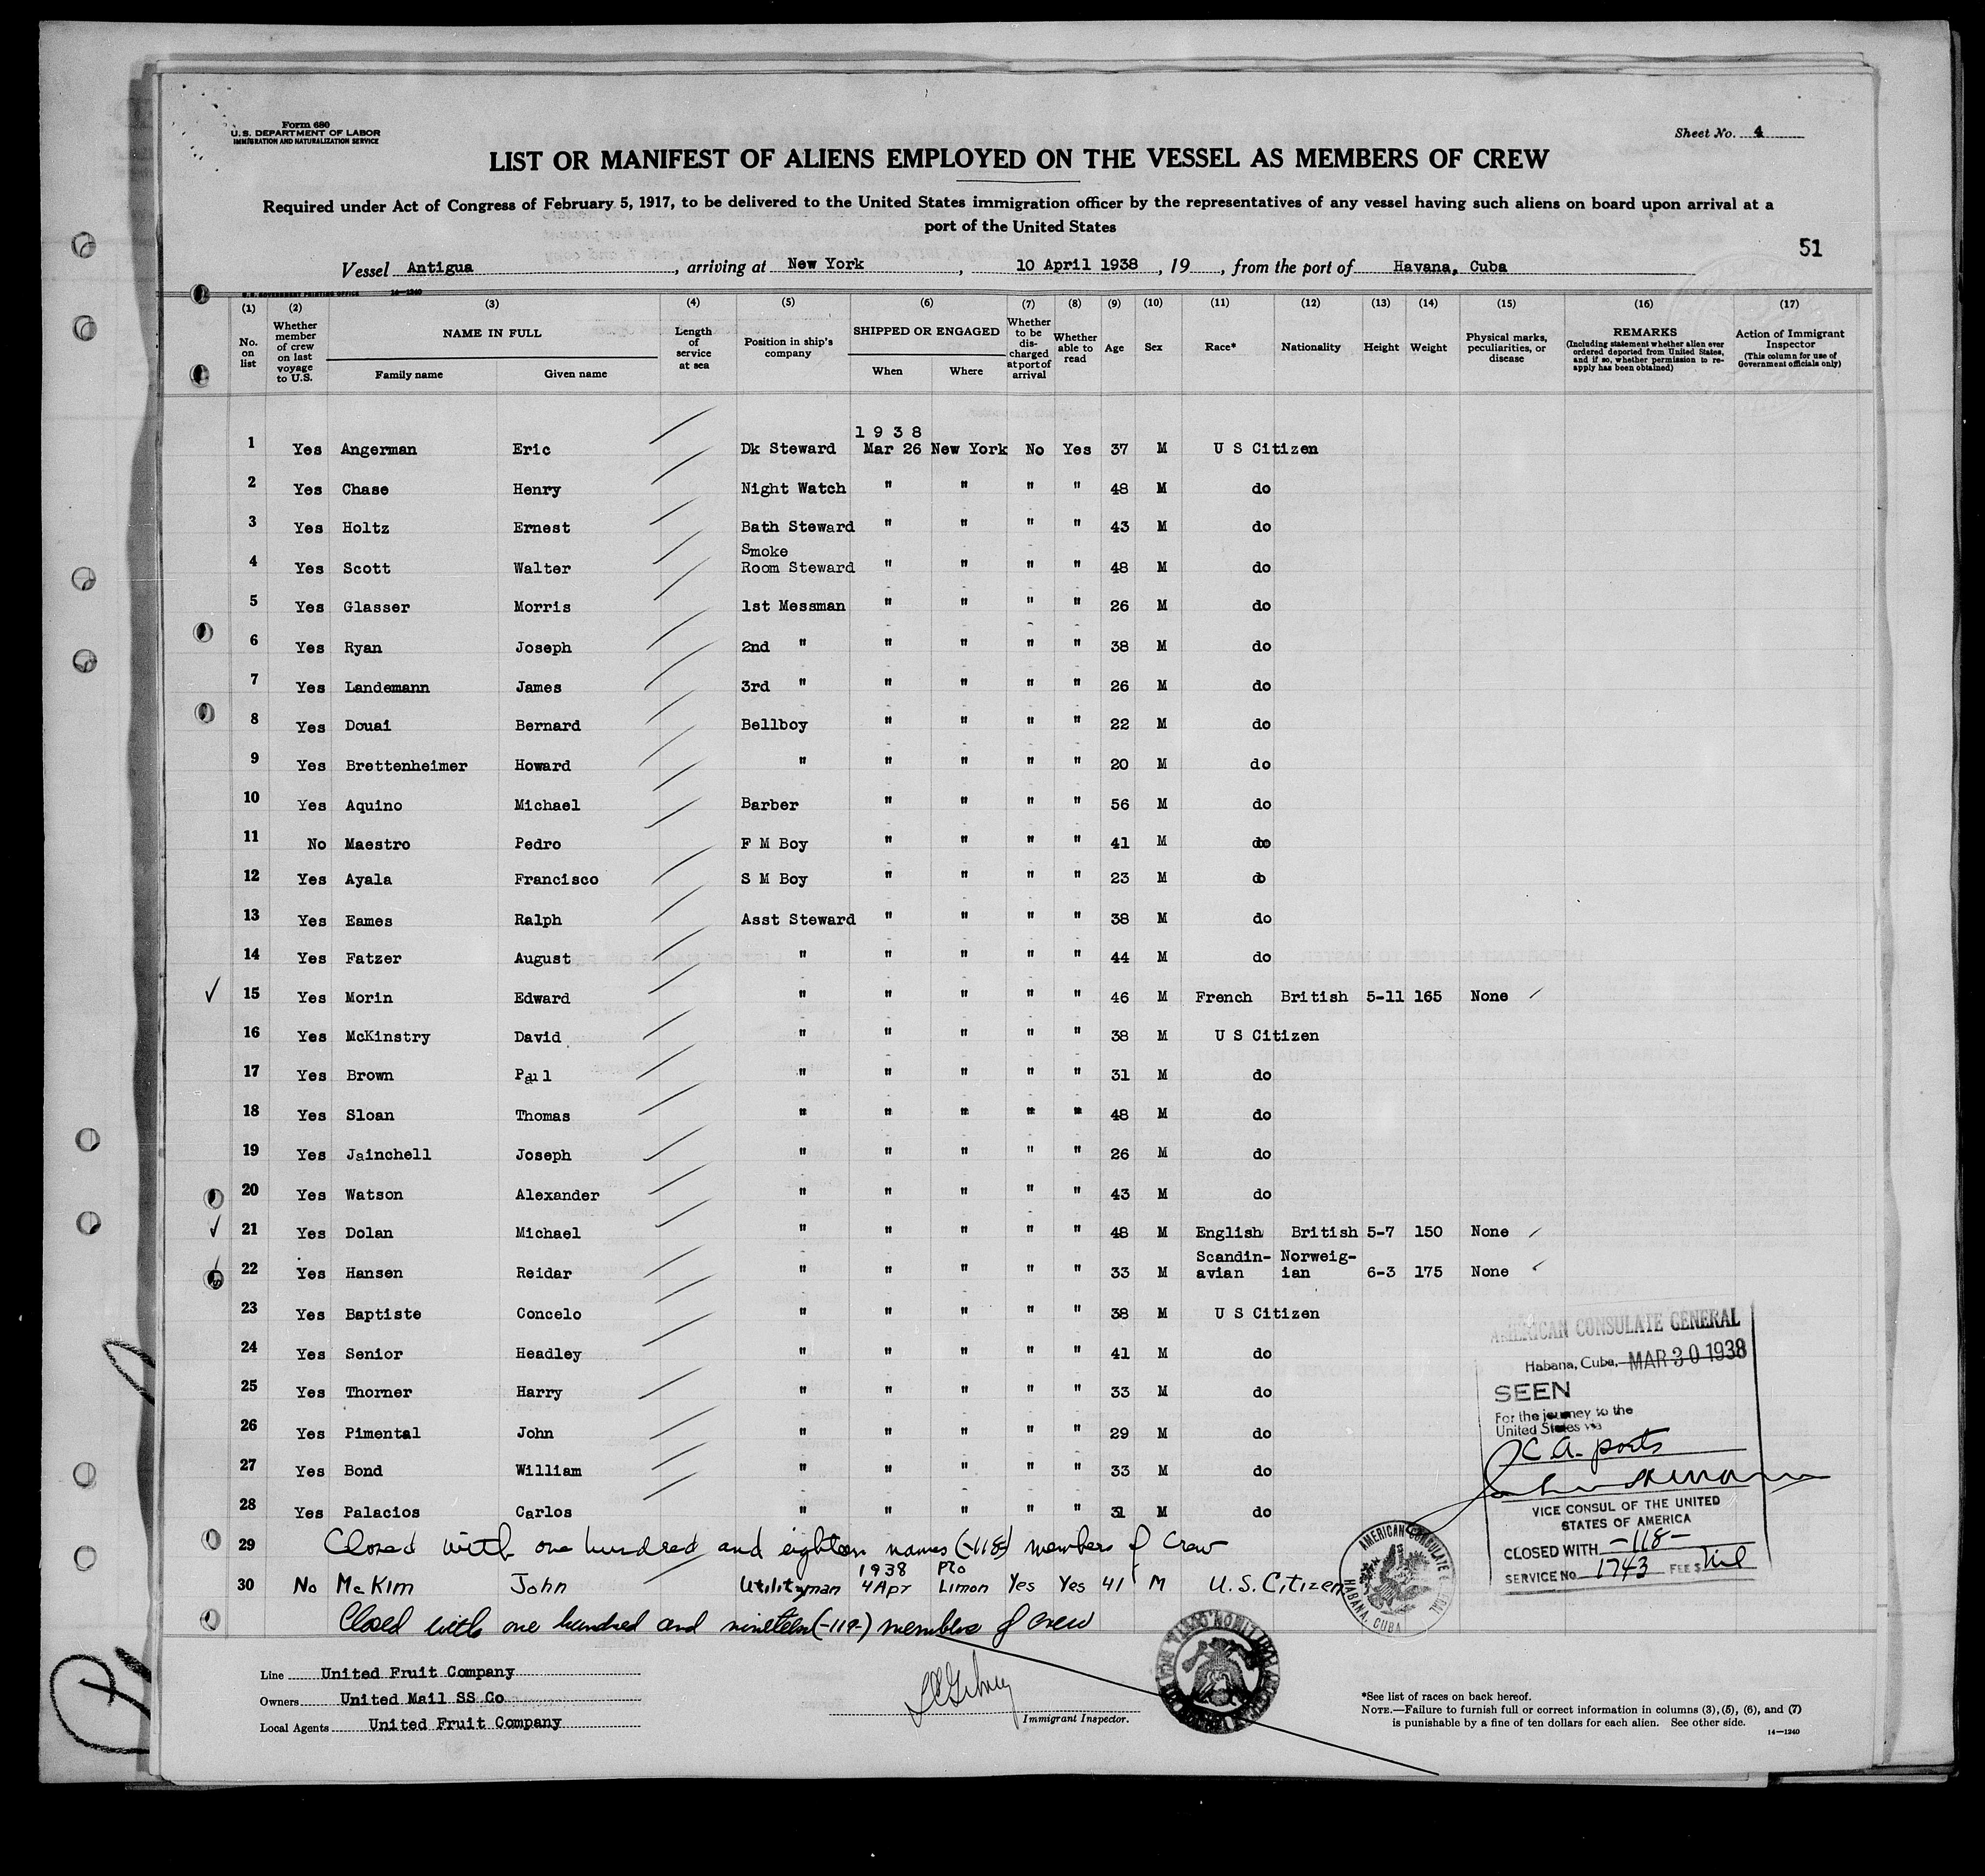 Form 680
U. S. DEPARTMENT OF LABOR
IMMIGRATION AND NATURALIZATION SERVICE
Sheet No. 4
LIST OR MANIFEST OF ALIENS EMPLOYED ON THE VESSEL AS MEMBERS OF CREW
Required under Act of Congress of February 5, 1917, to be delivered to the United States immigration officer by the representatives of any vessel having such aliens on board upon arrival at a
port of the United States
51
Vessel Antigua, arriving at New York, 10 April 1938, 19, from the port of Havana, Cuba
U. S. GOVERNMENT PRINTING OFFICE 14—1240
(1) (2) (3) (4) (5) (6) (7) (8) (9) (10) (11) (12) (13) (14) (15) (16) (17)
No. on list
Whether member of crew on last voyage to U.S.
NAME IN FULL
Family name Given name
Length of service at sea
Position in ship's company
SHIPPED OR ENGAGED
When Where
Whether to be discharged at port of arrival
Whether able to read
Age
Sex
Race*
Nationality
Height
Weight
Physical marks, peculiarities, or disease
REMARKS
(Including statement whether alien ever ordered deported from United States, and if so, whether permission to re-apply has been obtained)
Action of Immigrant Inspector
(This column for use of Government officials only)
1938
1 Yes Angerman Eric Dk Steward Mar 26 New York No Yes 37 M U S Citizen
2 Yes Chase Henry Night Watch " " " " 48 M do
3 Yes Holtz Ernest Bath Steward " " " " 43 M do
Smoke
4 Yes Scott Walter Room Steward " " " " 48 M do
5 Yes Glasser Morris 1st Messman " " " " 26 M do
6 Yes Ryan Joseph 2nd " " " " " 38 M do
7 Yes Landemann James 3rd " " " " " 26 M do
8 Yes Douai Bernard Bellboy " " " " 22 M do
9 Yes Brettenheimer Howard " " " " " 20 M do
10 Yes Aquino Michael Barber " " " " 56 M do
11 No Maestro Pedro F M Boy " " " " 41 M do
12 Yes Ayala Francisco S M Boy " " " " 23 M do
13 Yes Eames Ralph Asst Steward " " " " 38 M do
14 Yes Fatzer August " " " " " 44 M do
15 Yes Morin Edward " " " " " 46 M French British 5-11 165 None
16 Yes McKinstry David " " " " " 38 M U S Citizen
17 Yes Brown Paul " " " " " 31 M do
18 Yes Sloan Thomas " " " " " 48 M do
19 Yes Jainchell Joseph " " " " " 26 M do
20 Yes Watson Alexander " " " " " 43 M do
21 Yes Dolan Michael " " " " " 48 M English British 5-7 150 None
Scandin- Norweig-
22 Yes Hansen Reidar " " " " " 33 M avian ian 6-3 175 None
23 Yes Baptiste Concelo " " " " " 38 M U S Citizen
24 Yes Senior Headley " " " " " 41 M do
25 Yes Thorner Harry " " " " " 33 M do
26 Yes Pimental John " " " " " 29 M do
27 Yes Bond William " " " " " 33 M do
28 Yes Palacios Carlos " " " " " 31 M do
29 Closed with one hundred and eighteen names (-118-) members of crew
1938 Pto
30 No McKim John Utilityman 4 Apr Limon Yes Yes 41 M U.S. Citizen
Closed with one hundred and nineteen (-119-) members of crew
AMERICAN CONSULATE GENERAL
Habana, Cuba, MAR 30 1938
SEEN
For the journey to the
United States via
C. A. ports
VICE CONSUL OF THE UNITED
STATES OF AMERICA
CLOSED WITH -118-
SERVICE No. 1743 FEE $ Nil
AMERICAN CONSULATE GENERAL HABANA, CUBA
Line United Fruit Company
Owners United Mail SS Co
Local Agents United Fruit Company
Immigrant Inspector.
*See list of races on back hereof.
NOTE.—Failure to furnish full or correct information in columns (3), (5), (6), and (7)
is punishable by a fine of ten dollars for each alien. See other side.
14—1240